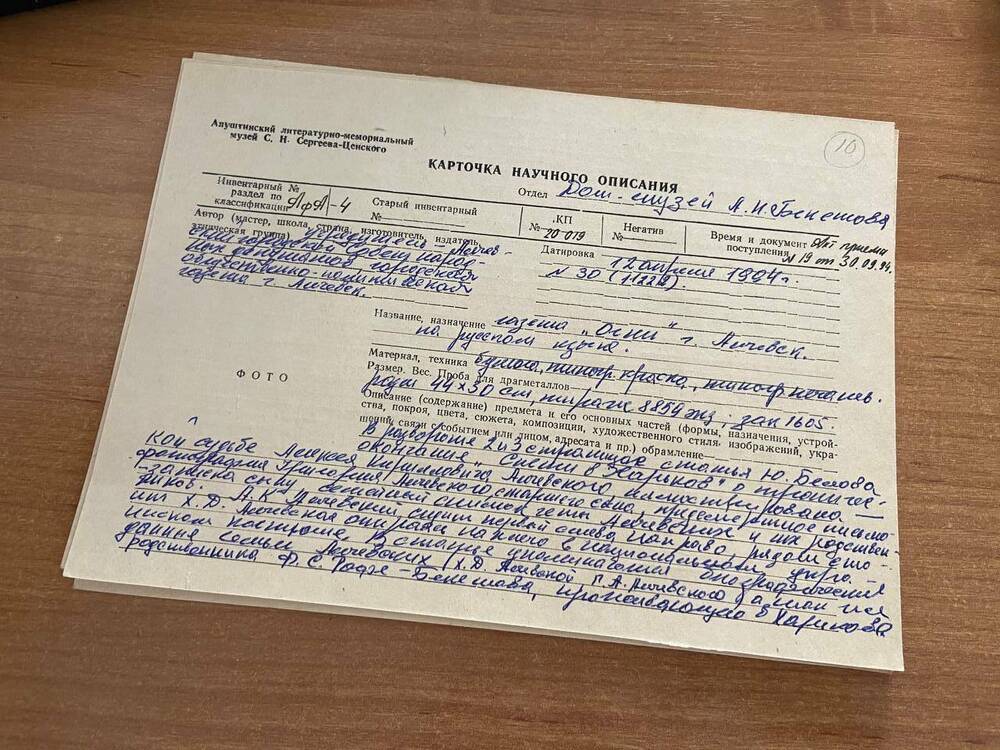 10
Алуштинский литературно-мемориальный
музей С. Н. Сергеева-Ценского
КАРТОЧКА НАУЧНОГО ОПИСАНИЯ
Отдел Дом-музей А.Н. Бекетова
Инвентарный №
раздел по
классификации АфА-4
Старый инвентарный
№
КП
№ 20 019
Негатив
№
Время и документ Акт приема
поступления N 19 от 30.09.94.
Автор (мастер, школа, страна, изготовитель, издатель,
этническая группа) Учредитель - Алчев-
ский городской Совет народ-
ных депутатов городская
общественно-политическая
газета г. Алчевск.
Датировка 12 апреля 1994г.
N 30 (1222).
Название, назначение газета "Огни" г. Алчевск.
на русском языке.
Материал, техника бумага, типогр. краска, типогр. печать.
Размер. Вес. Проба для драгметаллов
разм 44х30 см, тираж 8854 экз; зак 1605.
Описание (содержание) предмета и его основных частей (формы, назначения, устрой-
ства, покроя, цвета, сюжета, композиции, художественного стиля изображений, укра-
шений, связи с событием или лицом, адресата и пр.) обрамление
ФОТО
В развороте 2 и 3 страницах статья Ю. Белова
окончание "Спели в Харьков" о трагичес-
кой судьбе Алексея Кирилловича Алчевского иллюстрирована
фотографиями Григория Алчевского старшего сына, предсмертное письмо-
записка сыну, семейный снимок четы Алчевских и их родствен-
ников. А.К. Алчевский сидит первый слева направо, рядом сто-
ит Х.Д. Алчевская в национальном укра-
инском костюме. В статье упоминаются биографические
данные семьи Алчевских (Х.Д. Алчевской, Г.А. Алчевского а также
родственника Ф.С. Рофе-Бекетова, проживающего в Харькове.